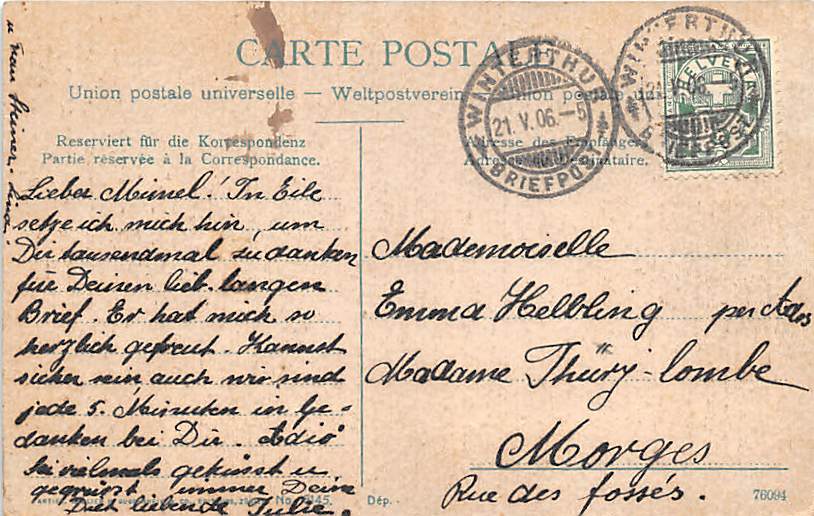 CARTE POSTALE
Union postale universelle – Weltpostverein – Union postale un
Reserviert für die Korrespondenz
Partie réservée à la Correspondance.
Adresse des Empfängers
Adresse du Destinataire.
WINTERTHUR
21. V. 06. – 5
BRIEFPOST
WINTERTHUR
HELVETIA
Lieber Mümel! In Eile
setze ich mich hin, um
Dir tausendmal zu danken
für Deinen lieb. langen
Brief. Er hat mich so
herzlich gefreut. Kannst
sicher sein auch wir sind
jede 5. Minuten in Ge-
danken bei Dir. Adio
Sei vielmals geküsst u.
gegrüsst immer Deine
Dich liebende Julie.
u Frau Steiner-
Mademoiselle
Emma Helbling per Adr
Madame Thüry-lombe
Morges
Rue des fossés.
No. 2145.
Dép.
76094